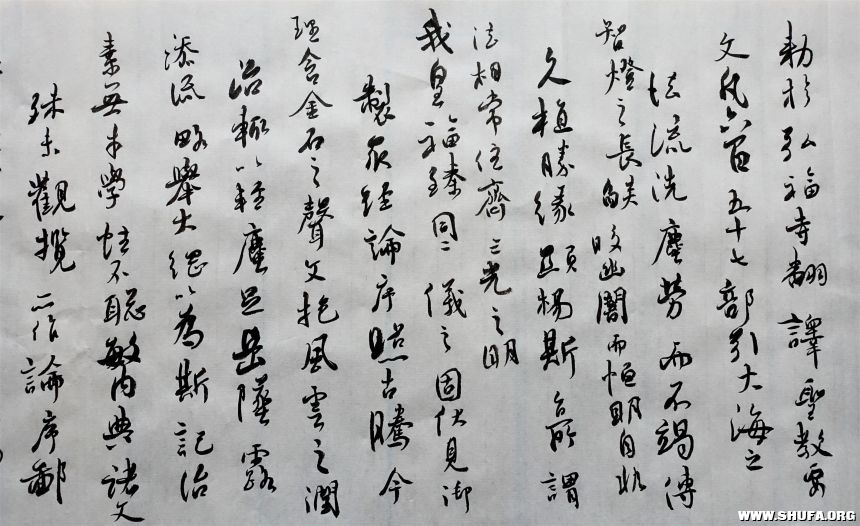 勅於弘福寺翻譯聖教要
文凡六百五十七部引大海之
法流洗塵勞而不竭傳
智燈之長焰皎幽闇而恒明自非
久植勝緣顯揚斯旨所謂
法相常住齊三光之明
我皇福臻同二儀之固伏見御
製衆經論序照古騰今
理含金石之聲文抱風雲之潤
治輒以輕塵足岳墜露
添流略舉大綱以為斯記治
素無才學性不聰敏內典諸文
殊未觀攬所作論序鄙
WWW.SHUFA.ORG